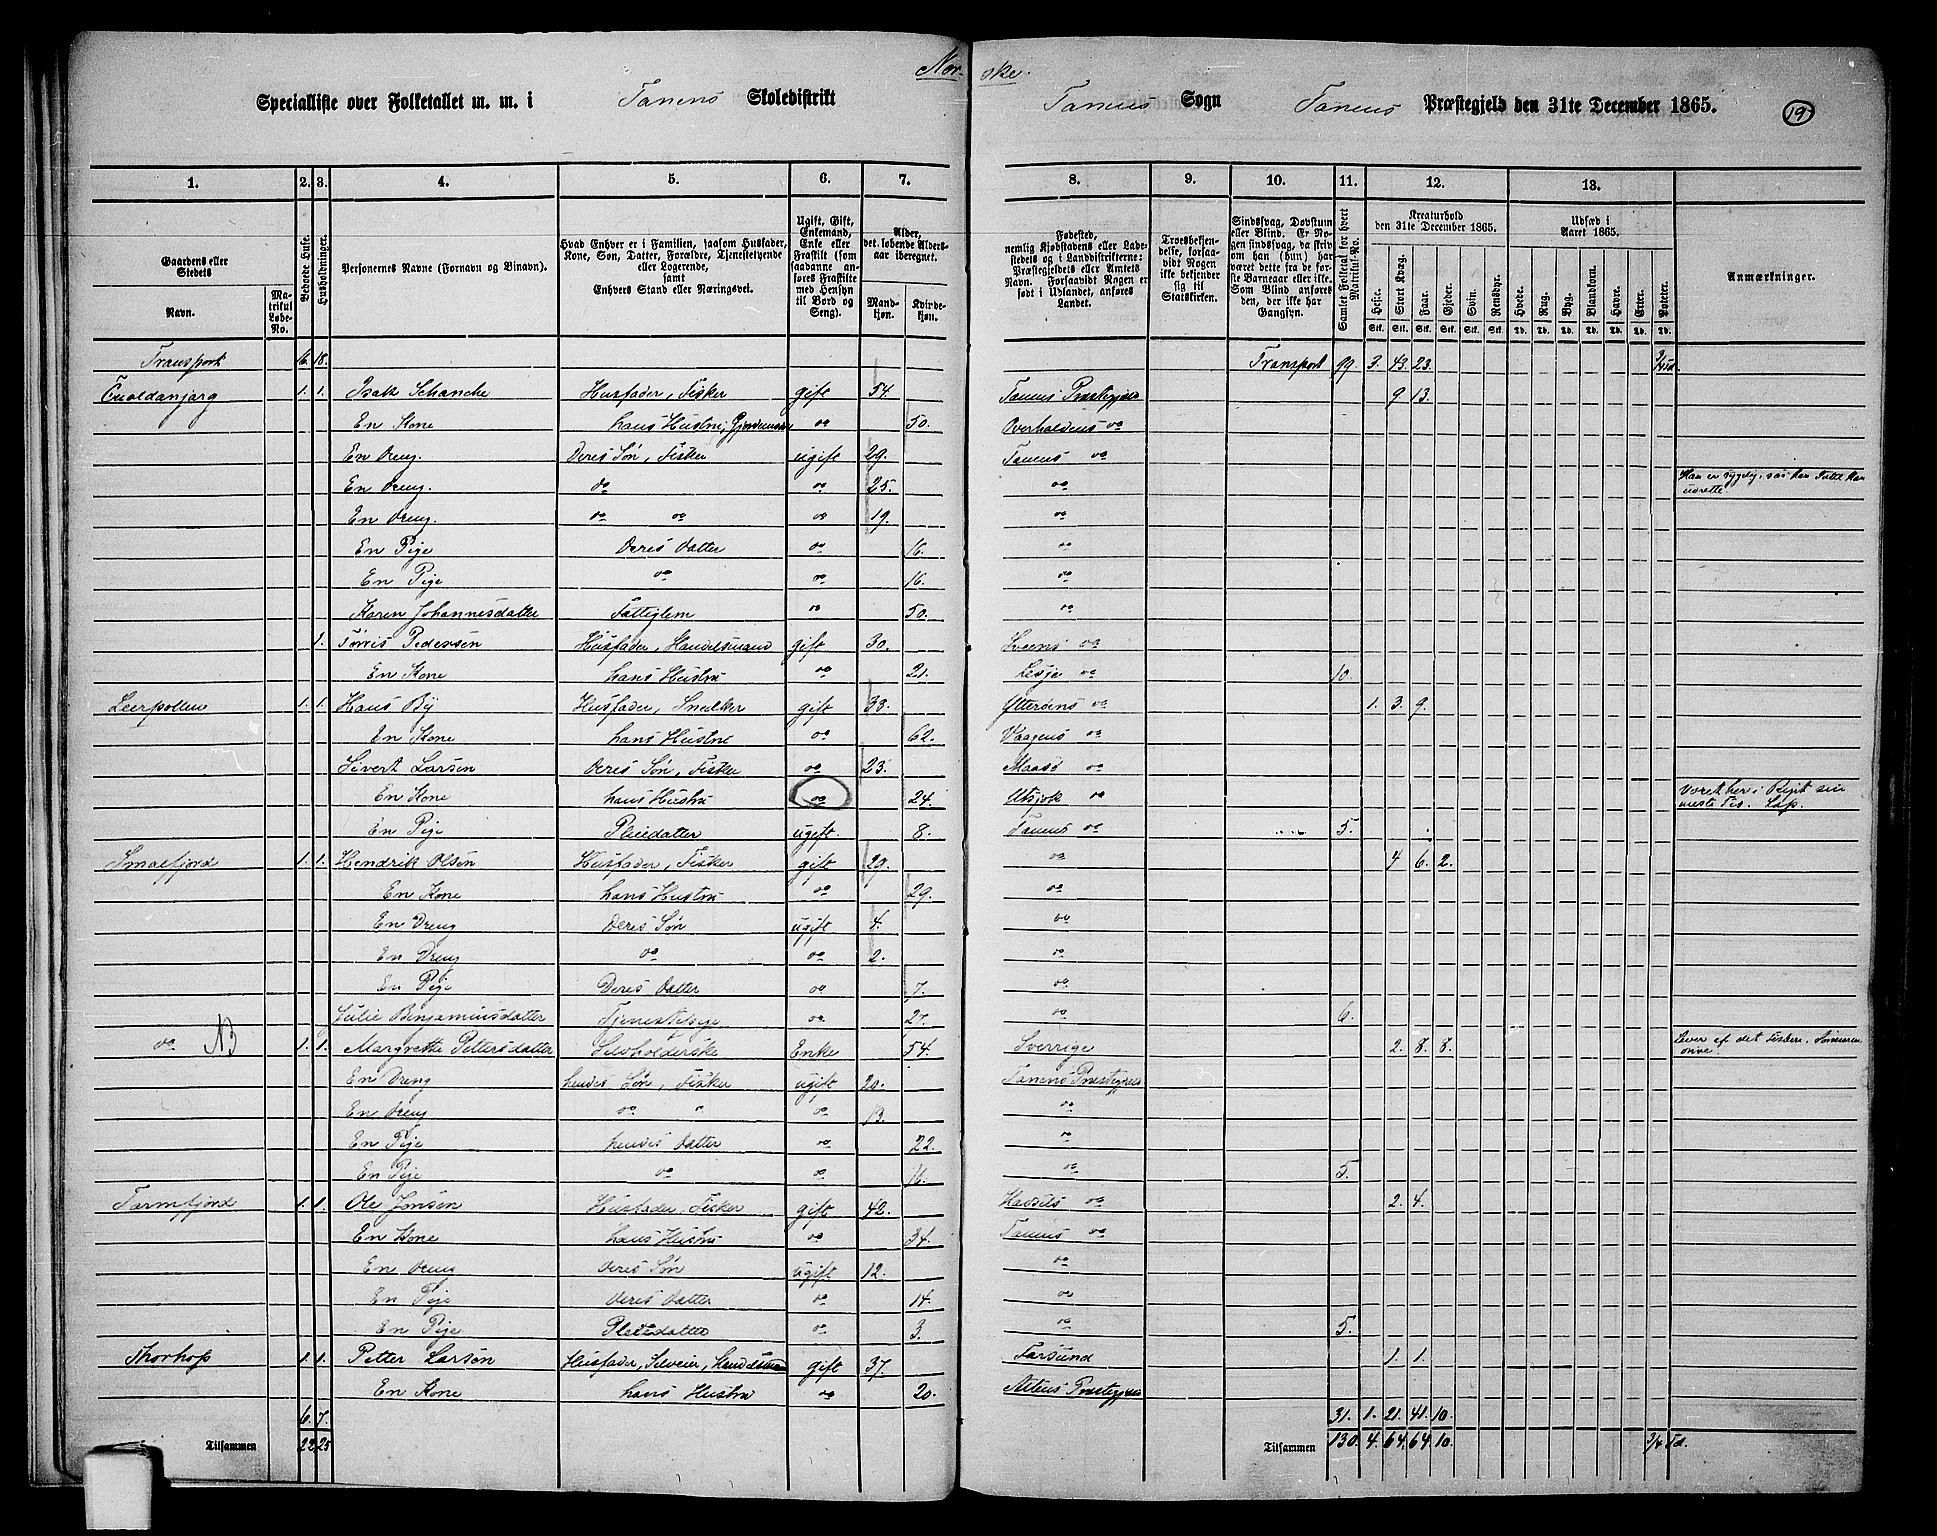 Nor- ske.
Specialliste over Folketallet m. m. i Tanens Skoledistrikt Tanens Sogn Tanens Præstegjeld den 31te December 1865. 19
1. 2. 3. 4. 5. 6. 7. 8. 9. 10. 11. 12. 13.
Gaardens eller Stedets
Navn.
Matrikul Løbe-No.
Beboede Huse.
Husholdninger.
Personernes Navne (Fornavn og Binavn).
Hvad Enhver er i Familien, saasom Husfader, Kone, Søn, Datter, Forældre, Tjenestetyende eller Logerende, samt Enhvers Stand eller Næringsvei.
Ugift, Gift, Enkemand, Enke eller Fraskilt (som saadanne anføres Fraskilte med Hensyn til Bord og Seng).
Alder, det løbende Aldersaar iberegnet.
Mandkjøn. Kvindekjøn.
Fødested, nemlig Kjøbstadens eller Ladestedets og i Landdistrikterne: Præstegjeldets eller Amtets Navn. Forsaavidt Nogen er født i Udlandet, anføres Landet.
Troesbekjendelse, forsaavidt Nogen ikke bekjender sig til Statskirken.
Sindssvag, Døvstum eller Blind. Er Nogen sindssvag, da skriv om han (hun) har været dette fra de første Barneaar eller ikke. Som Blind ansøres den, der ikke har Gangsyn.
Samlet Folketal for hvert Matrikul-No.
Kreaturhold den 31te December 1865.
Heste. Stort Kvæg. Faar. Gjeder. Svin. Rensdyr.
Udsæd i Aaret 1865.
Hvede. Rug. Byg. Blandkorn. Havre. Erter. Poteter.
Anmærkninger.
Transport 16. 18. Transport 99. 3. 43. 23. 3/4 Td.
Cuoldanjarg 1. 1. Isak Schanche Husfader, Fisker gift 54. Tanens Præstegjeld 9 13.
En Kone hans Hustru, Gjordemoder do 50. Overhaldens do
En Dreng. Deres Søn, Fisker ugift 29. Tanens do
En Dreng. do do 25. do Han er sygelig, saa han Intet kan udrette
En Dreng. do do do 19. do
En Pige Deres Datter do 16. do
En Pige do do 16. do
Karen Johannesdatter Fattiglem do 50. do
1. Tørris Pedersen Husfader, Handelsmand gift 30. Sveens do
En Kone hans Hustru do 21. Lesje do 10.
Leerpollen 1. 1. Hans By Husfader, Snedker gift 33. Ytterøens do 1. 3. 9.
En Kone hans Hustru do 62. Vaagens do
Sivert Larsen Deres Søn, Fisker do 23. Maasø do
En Kone hans Hustru do 24. Utsjok do
En Pige Pleiedatter ugift 8. Tanens do 5.
Smalfjord 1. 1. Hendrik Olsen Husfader, Fisker gift 29. do 4 6. 2.
En Kone hans Hustru do 29. do
En Dreng Deres Søn ugift 4. do
En Dreng do do 2. do
En Pige Deres Datter do 7. do
Julie Benjaminsdatter Tjenestepige do 27. 6.
do NB 1. 1. Margrethe Pettersdatter Selvholderske Enke 54. Sverrige 2. 8. 8. Lever af det Fiskeri, Sønneren
En Dreng hendes Søn, Fisker ugift 20. Tanens Præstegjeld
En Dreng do " do 13. do
En Pige hendes Datter do 22. do
En Pige do do 16. do 5.
Tarmfjord 1. 1. Ole Jonsen Husfader, Fisker gift 42. do 2. 4.
En Kone hans Hustru do 34. Tanens do
En Dreng Deres Søn ugift 12. do
En Pige Deres Datter do 14. do
En Pige Pleiedatter do 3. do 5.
Thorhop 1. 1. Petter Larsen Husfader, Selveier, Handelsmand gift 37. Farsund 1. 1.
En Kone hans Hustru do 20. Altens Præstegjeld
6. 7. 31. 1. 21. 41. 10.
Tilsammen 22 25 Tilsammen 130. 4. 64. 64. 10. 3/4 Td.